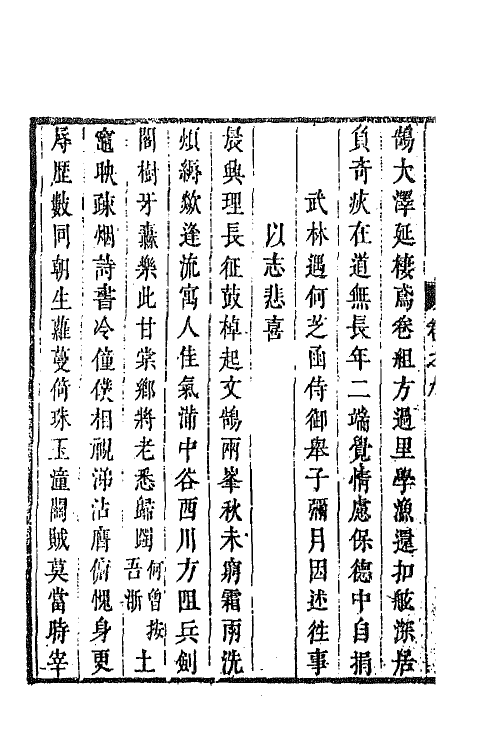 鵠大澤延棲鳶卷組方過里學漁還扣舷深居
負奇疢在道無長年二端覺情慮保德中自捐
武林遇何芝函侍御舉子彌月因述往事
以志悲喜
晨興理長征鼓棹起文鷁兩峯秋未霜雨洗
煩縟欻逢流寓人佳氣滿中谷西川方阻兵劍
閣樹牙纛樂此甘棠鄉將老悉歸蜀何曾按吾浙土
竈映疎烟詩書冷僮僕相視涕沾膺俯愧身更
辱歷數同朝生蘿蔓倚珠玉潼關賊莫當時宰